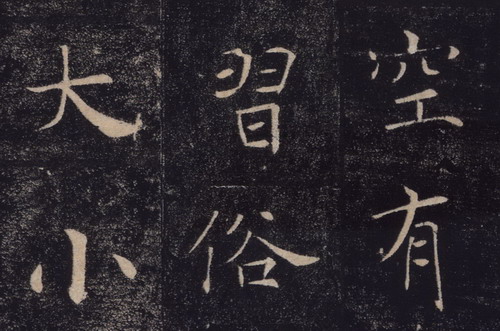 空有
習俗
大小